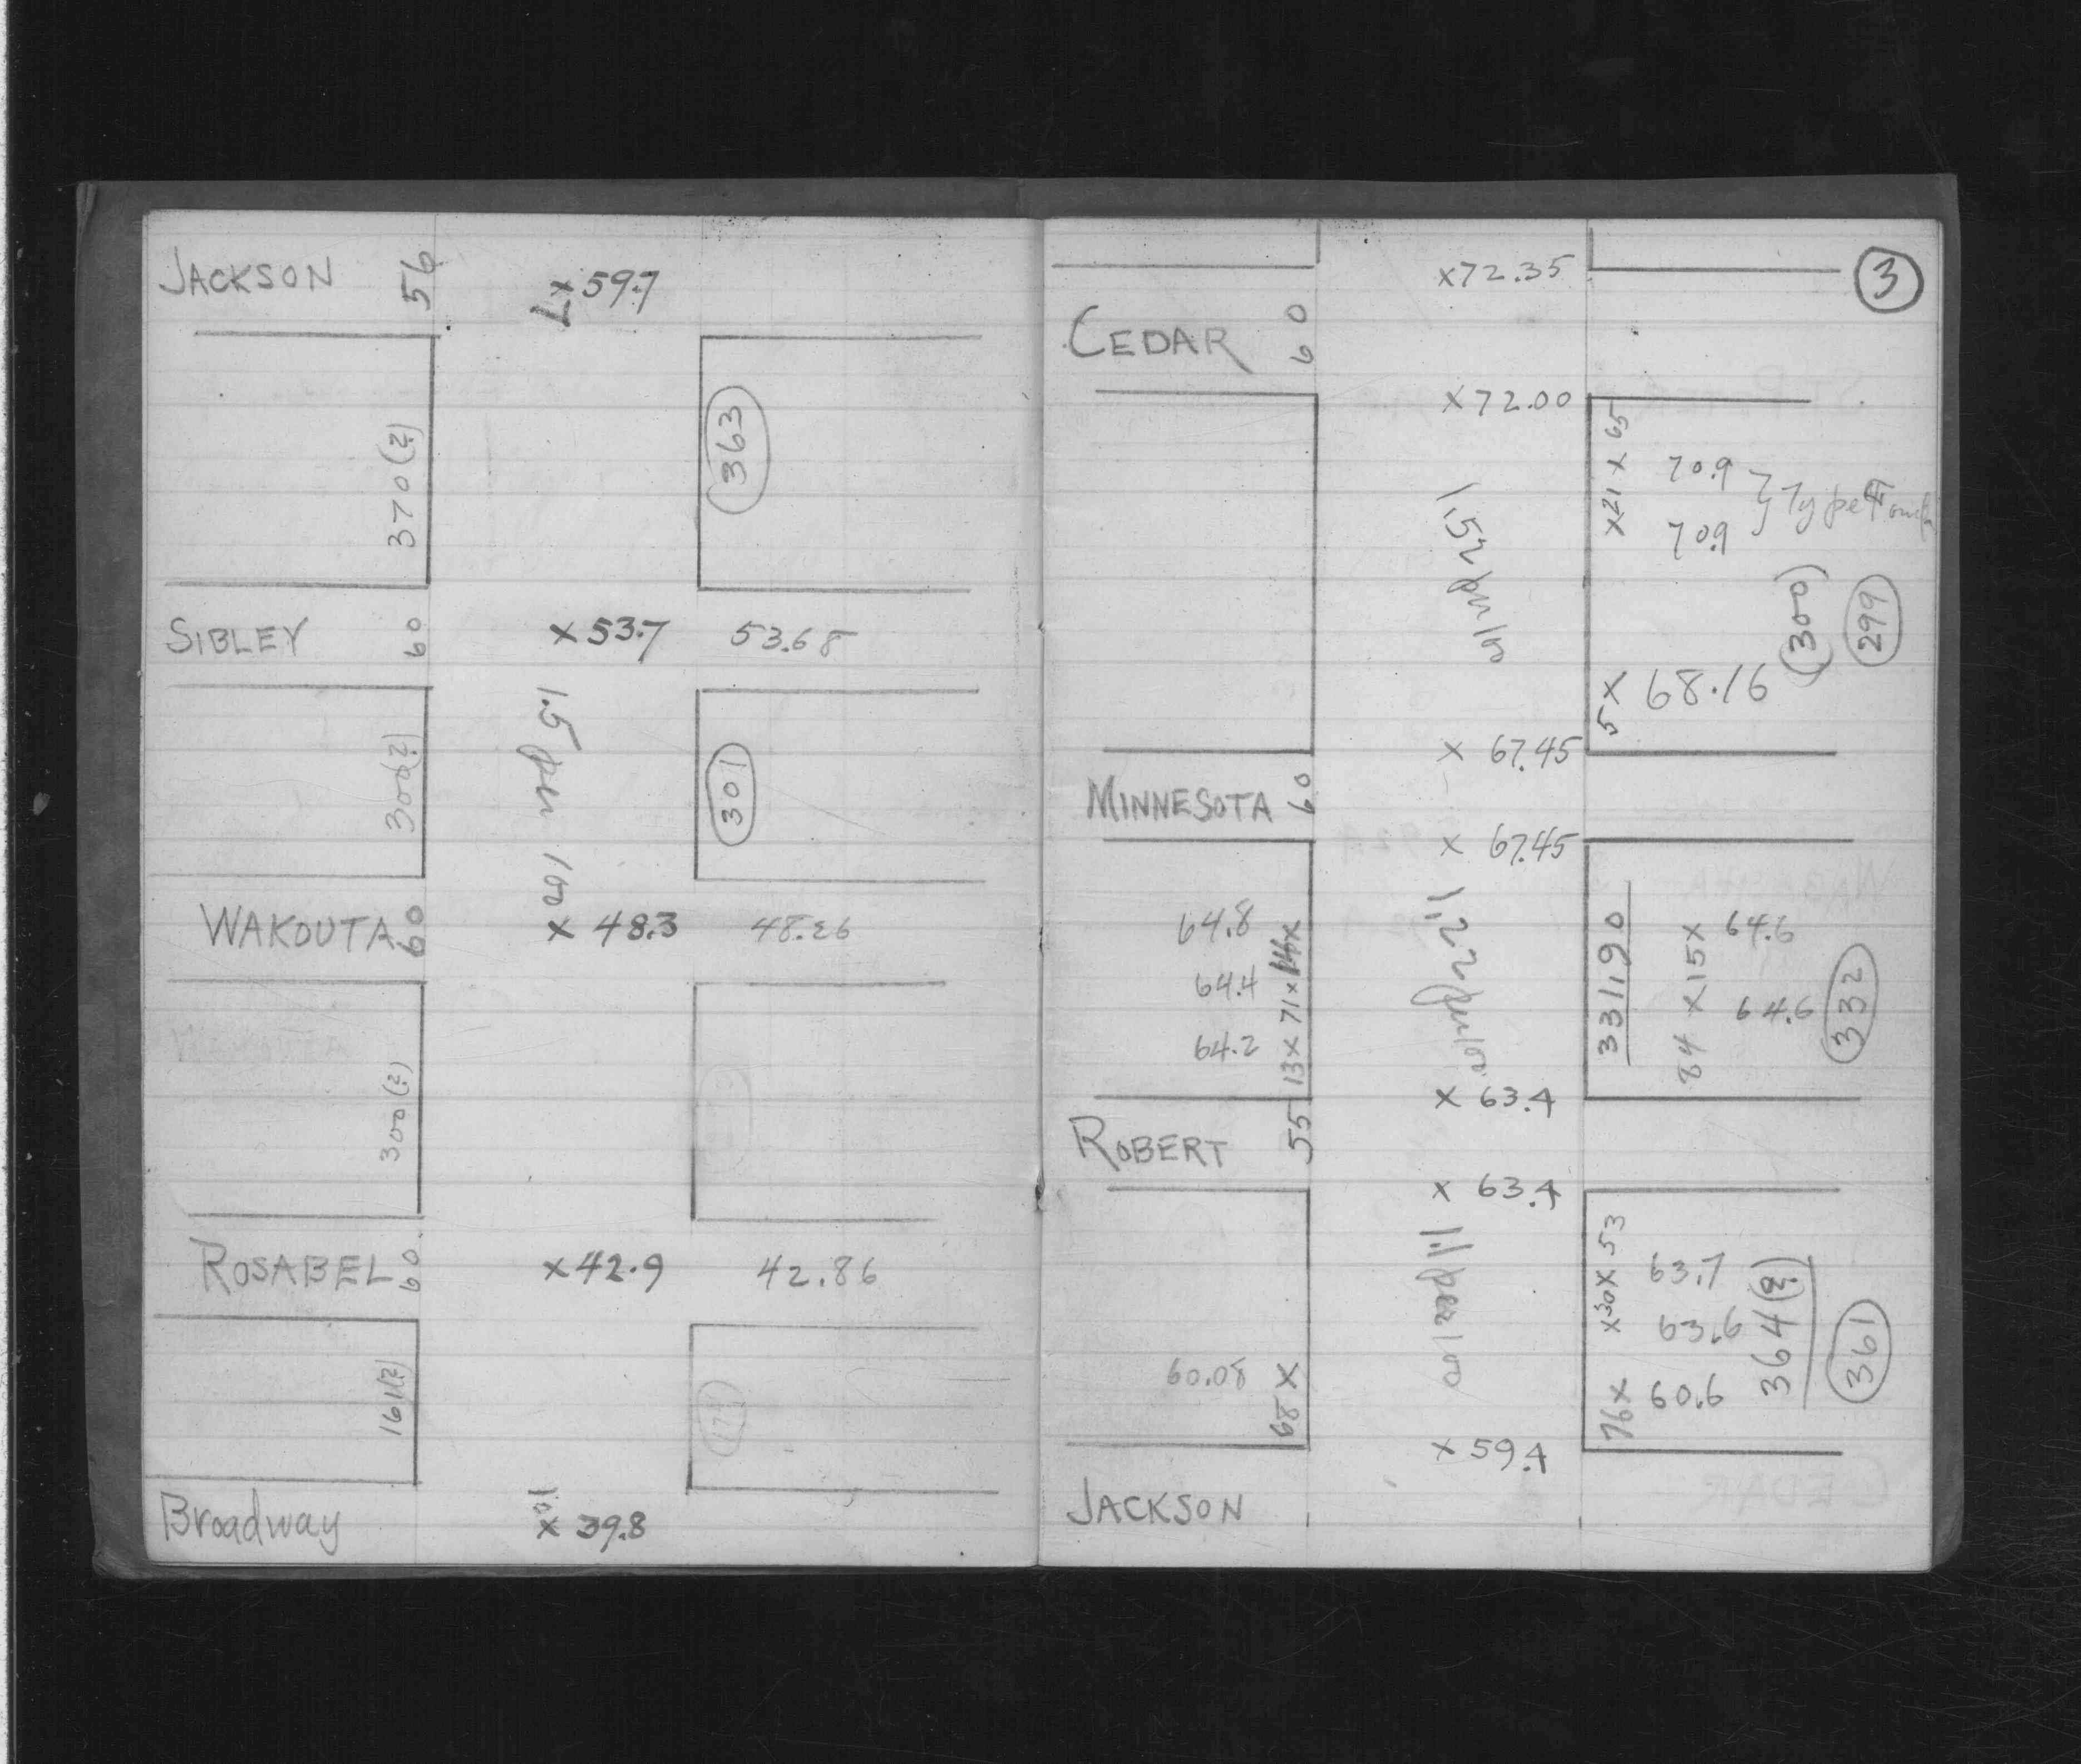 JACKSON 56 x 59.7
7
370(?)
363
SIBLEY 60 x 53.7 53.68
300(?)
1.5 per 100
301
WAKOUTA 60 x 48.3 48.26
300(?)
ROSABEL 60 x 42.9 42.86
161(?)
Broadway x 39.8
3
x 72.35
CEDAR 60
x 72.00
x 21 x 65
70.9
70.9
} Type
1.52 per
(300)
299
5 x 68.16
x 67.45
MINNESOTA 60
x 67.45
64.8
64.4
64.2
13 x 71 x
1.22 per 100
331.190
84 x 15 x
64.6
64.6
332
x 63.4
ROBERT 55
x 63.4
1.1 per 100
x 30 x 53
63.7
63.6
364(?)
361
60.08
68 x
76 x 60.6
x 59.4
JACKSON